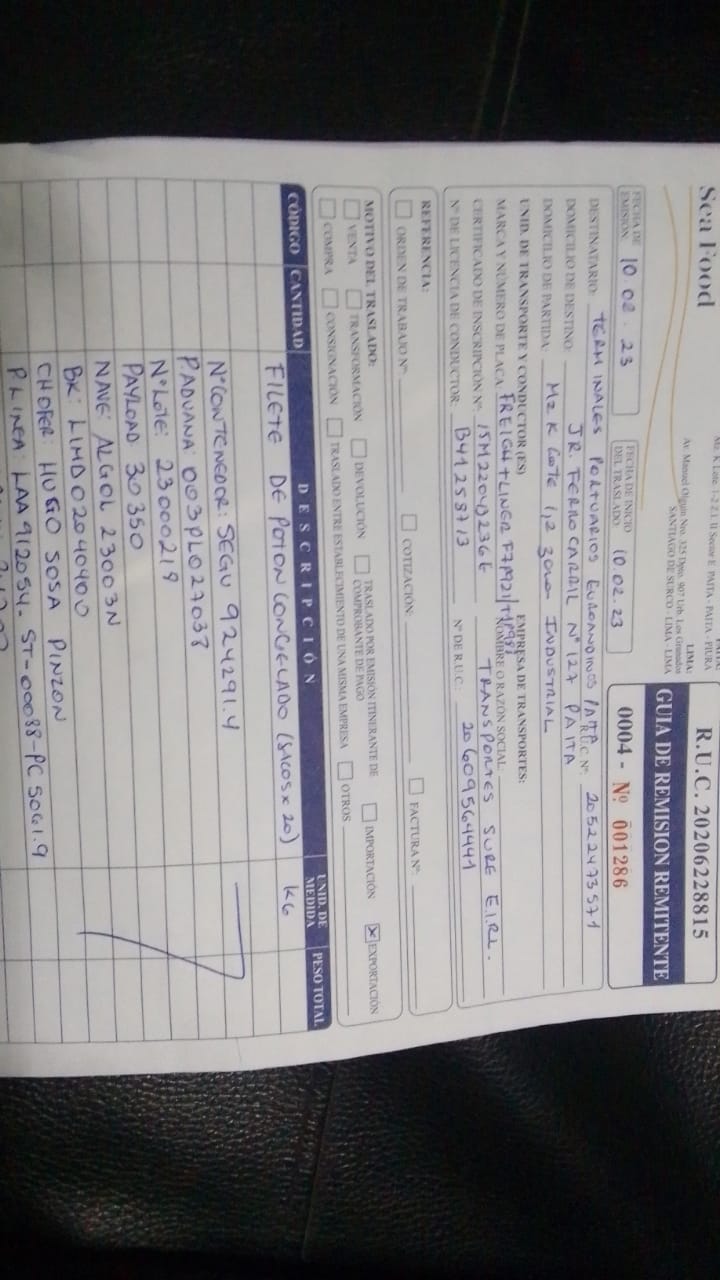 Sea Food
Mz. K Lote 1-2 Z.I. II Sector E PAITA - PAITA - PIURA
LIMA:
Av. Manuel Olguin Nro. 325 Dpto. 907 Urb. Los Granados
SANTIAGO DE SURCO - LIMA - LIMA
R.U.C. 20206228815
GUIA DE REMISION REMITENTE
0004 - Nº 001286
FECHA DE EMISIÓN: 10.02.23
FECHA DE INICIO DEL TRASLADO: 10.02.23
DESTINATARIO: TERMINALES PORTUARIOS EUROANDINOS PAITA R.U.C. Nº: 20522473571
DOMICILIO DE DESTINO: JR. FERROCARRIL Nº 127 PAITA
DOMICILIO DE PARTIDA: MZ K Lote 1,2 Zona INDUSTRIAL
UNID. DE TRANSPORTE Y CONDUCTOR (ES) EMPRESA DE TRANSPORTES:
MARCA Y NÚMERO DE PLACA: FREIGHTLINER NOMBRE O RAZÓN SOCIAL:
CERTIFICADO DE INSCRIPCIÓN Nº: TRANSPORTES SURE E.I.RL.
Nº DE LICENCIA DE CONDUCTOR: B41258713 Nº DE R.U.C.: 20609564441
REFERENCIA:
ORDEN DE TRABAJO Nº: COTIZACIÓN: FACTURA Nº:
MOTIVO DEL TRASLADO:
VENTA TRANSFORMACIÓN DEVOLUCIÓN TRASLADO POR EMISIÓN ITINERANTE DE COMPROBANTE DE PAGO IMPORTACIÓN X EXPORTACIÓN
COMPRA CONSIGNACIÓN TRASLADO ENTRE ESTABLECIMIENTO DE UNA MISMA EMPRESA OTROS
CÓDIGO CANTIDAD DESCRIPCIÓN UNID. DE MEDIDA PESO TOTAL
FILETE DE POTON CONGELADO (SACOS x 20) KG
Nº CONTENEDOR: SEGU 924291.4
P. ADUANA: 003PL027038
Nº LOTE: 23000219
PAYLOAD 30350
NAVE: ALGOL 23003N
BK: LIMD02040400
CHOFER: HUGO SOSA PINZON
P LINEA: LAA912054- ST-00088-PC 5061.9